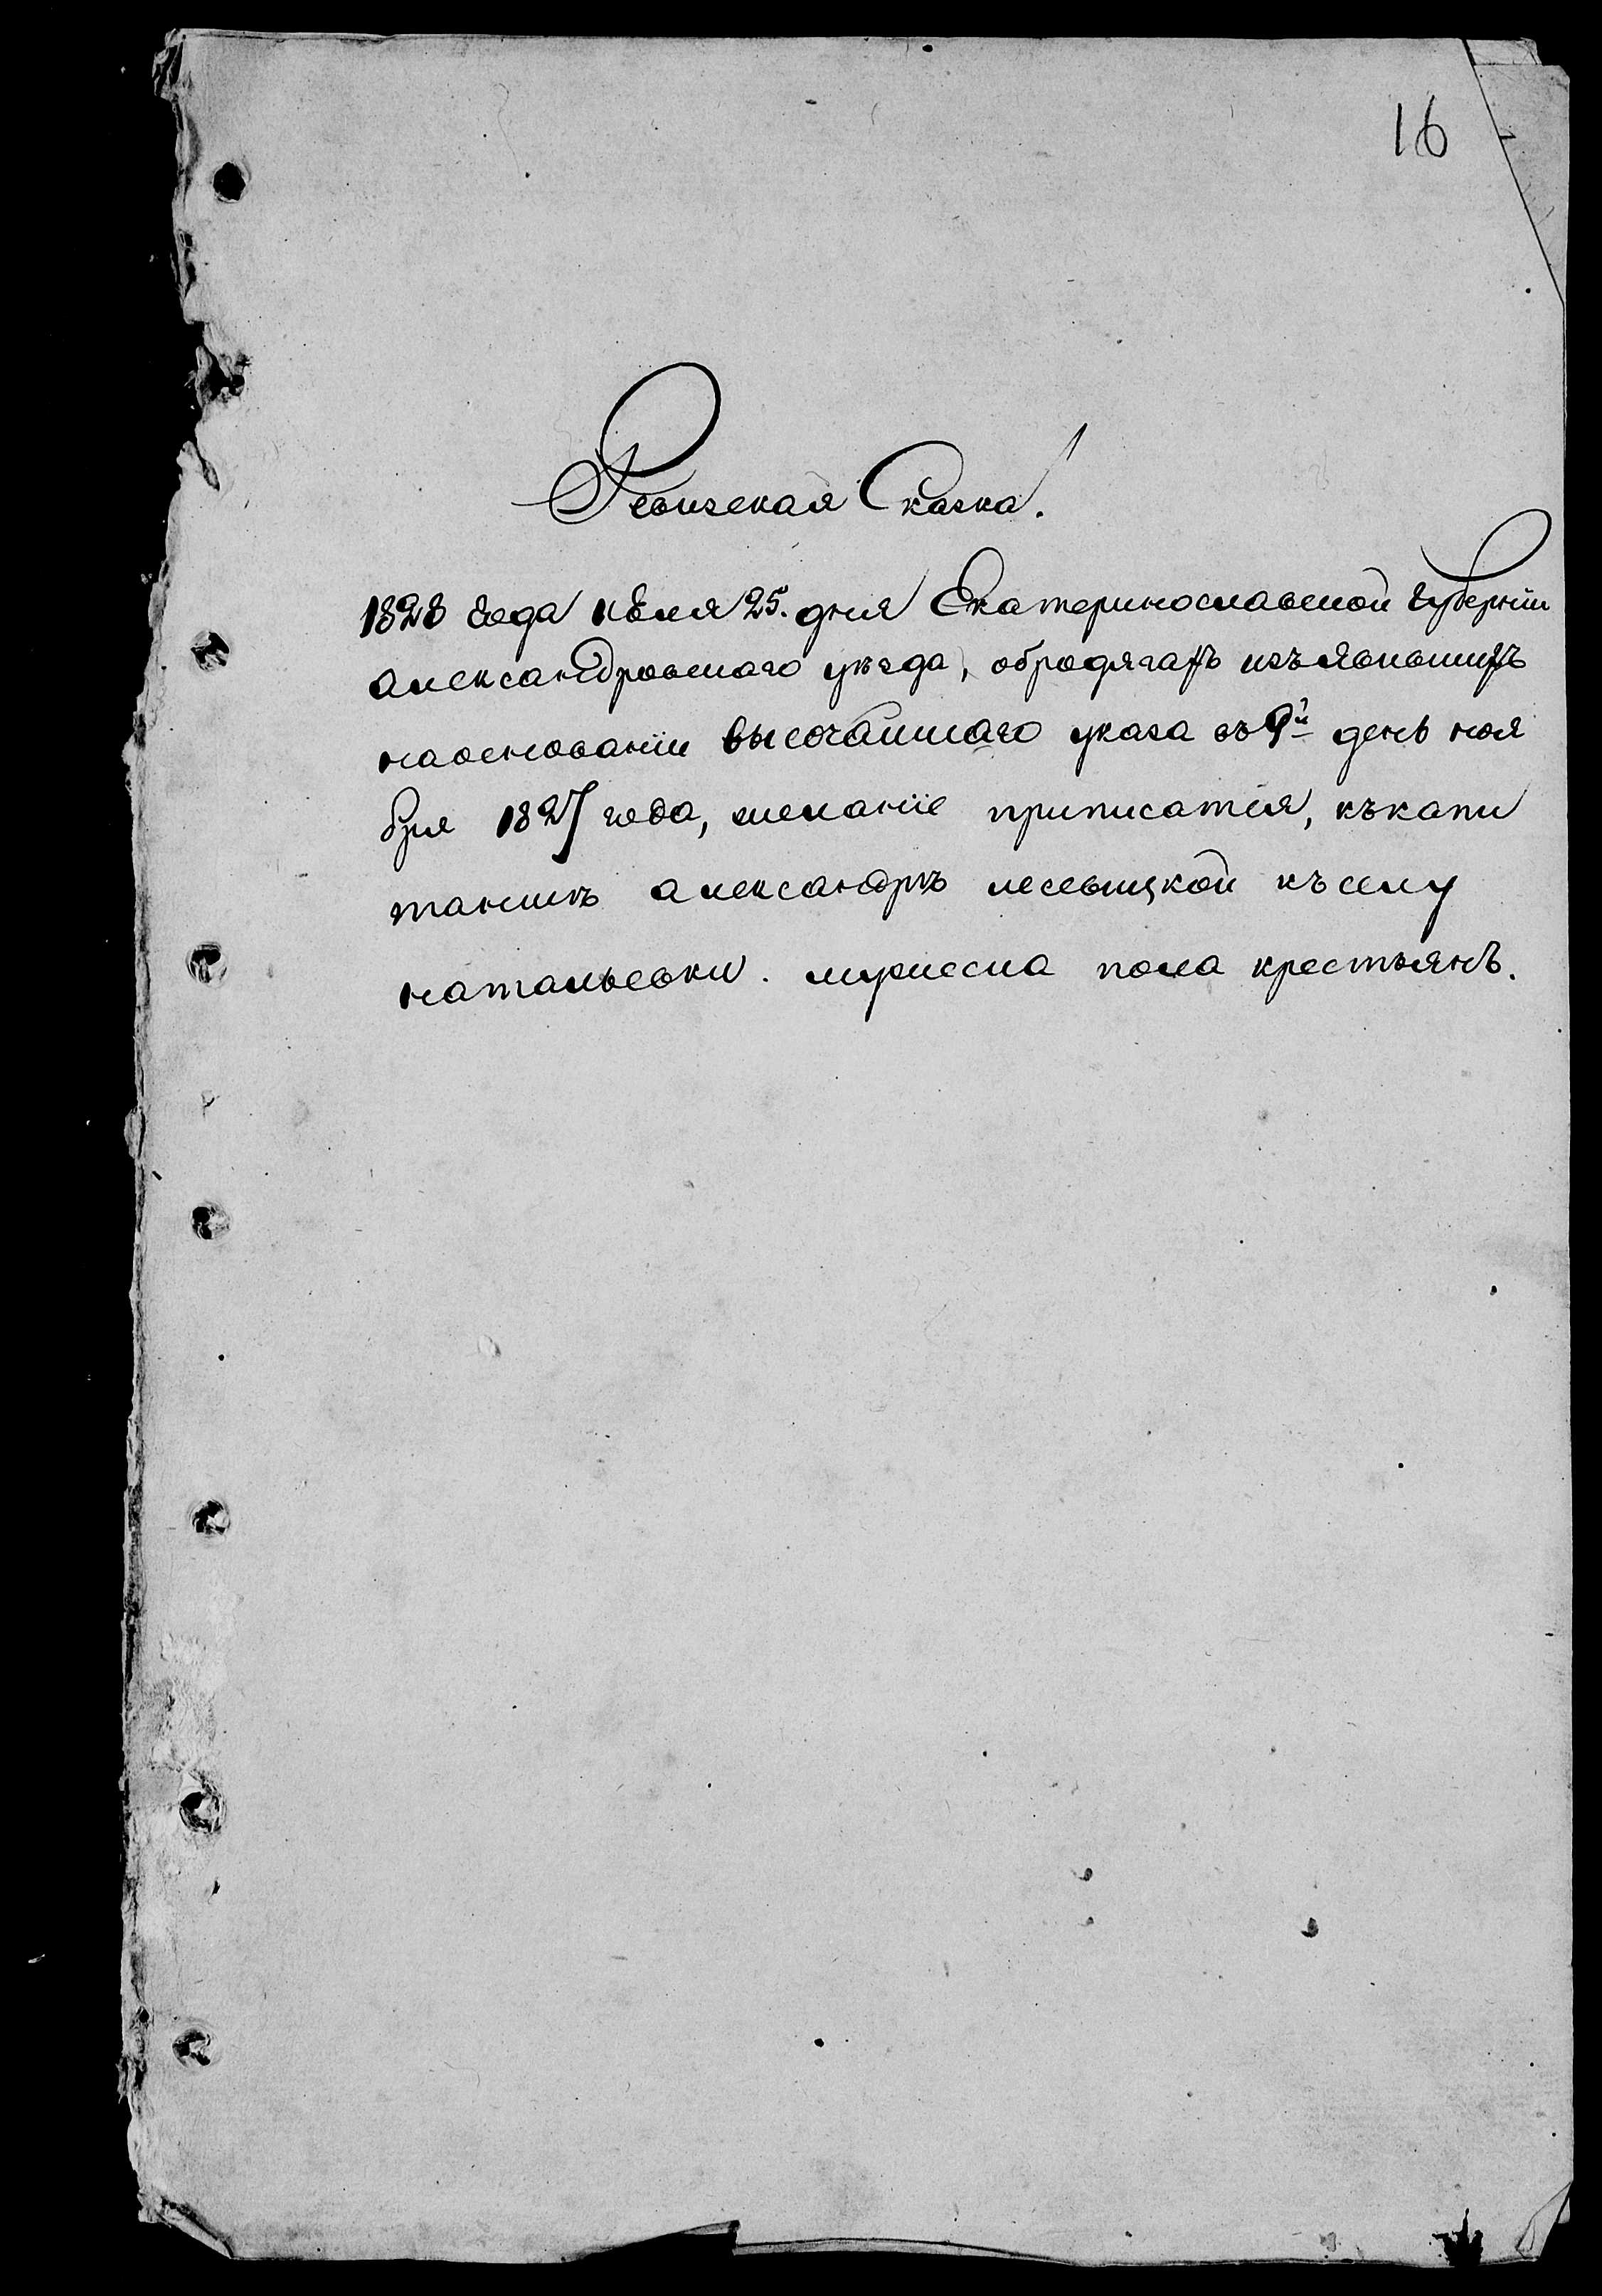 16
Ревизская Сказка.
1828 года июля 25. дня Екатеринославской губернїи
александровского уезда, обродягахъ изъявившихъ
наосновании высочайшаго указа въ 9й день ноя
бря 1827 года, желанїе приписатся, къкапи
таншѣ александрѣ лесевицкой къселу
натальевки. мужеска пола крестьянъ.